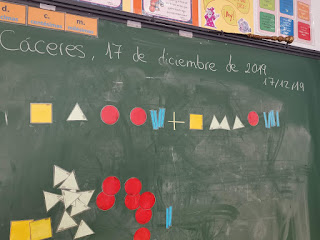 d. c. m.
Cáceres, 17 de diciembre de 2019
17/12/19
+